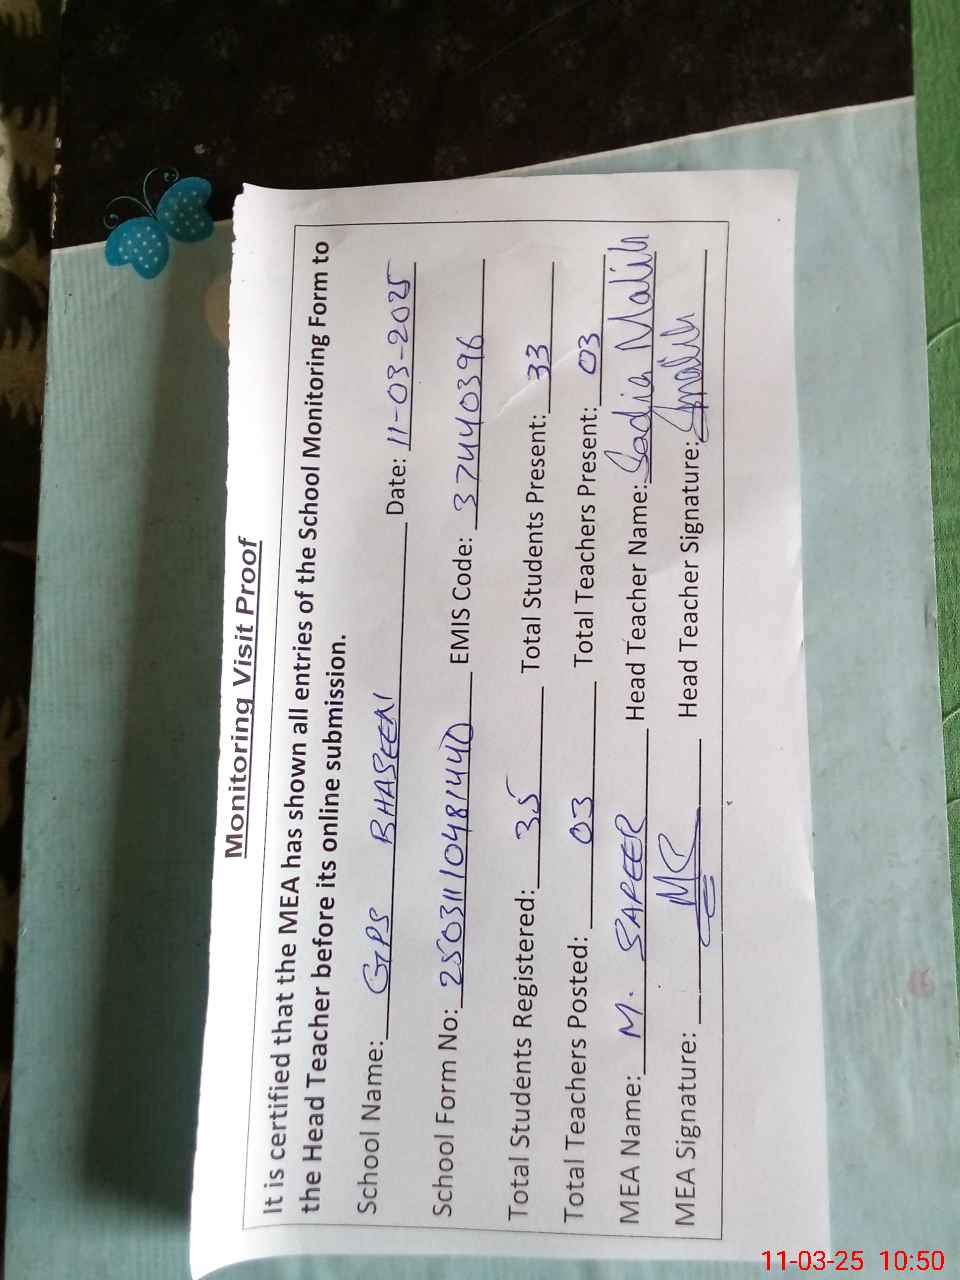 Monitoring Visit Proof
It is certified that the MEA has shown all entries of the School Monitoring Form to
the Head Teacher before its online submission.
School Name: GPS BHASEEN Date: 11-03-2025
School Form No: 25031110481440 EMIS Code: 37440396
Total Students Registered: 35 Total Students Present: 33
Total Teachers Posted: 03 Total Teachers Present: 03
MEA Name: M. SAFEER Head Teacher Name: Sadia Malik
MEA Signature: Head Teacher Signature: Smalik
11-03-25 10:50